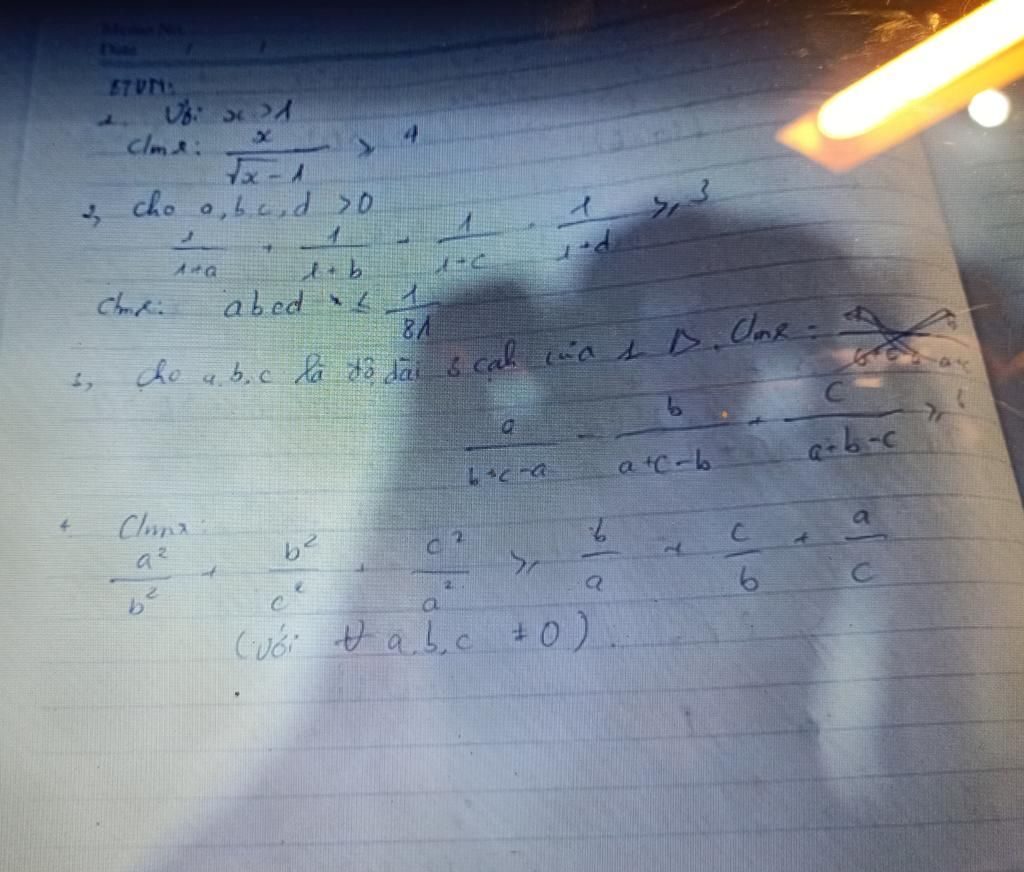 Date / /
BTVN:
1. Với x > 1
Cmr: x/(√x - 1) ≥ 4
2, Cho a, b, c, d > 0
1/(1+a) + 1/(1+b) + 1/(1+c) + 1/(1+d) ≥ 3
Cmr: abcd ≤ 1/81
3, Cho a, b, c là độ dài 3 cạh của 1 Δ. Cmr:
a/(b+c-a) + b/(a+c-b) + c/(a+b-c) ≥
4 Cmr:
a²/b² + b²/c² + c²/a² ≥ b/a + c/b + a/c
(với ∀ a, b, c ≠ 0).